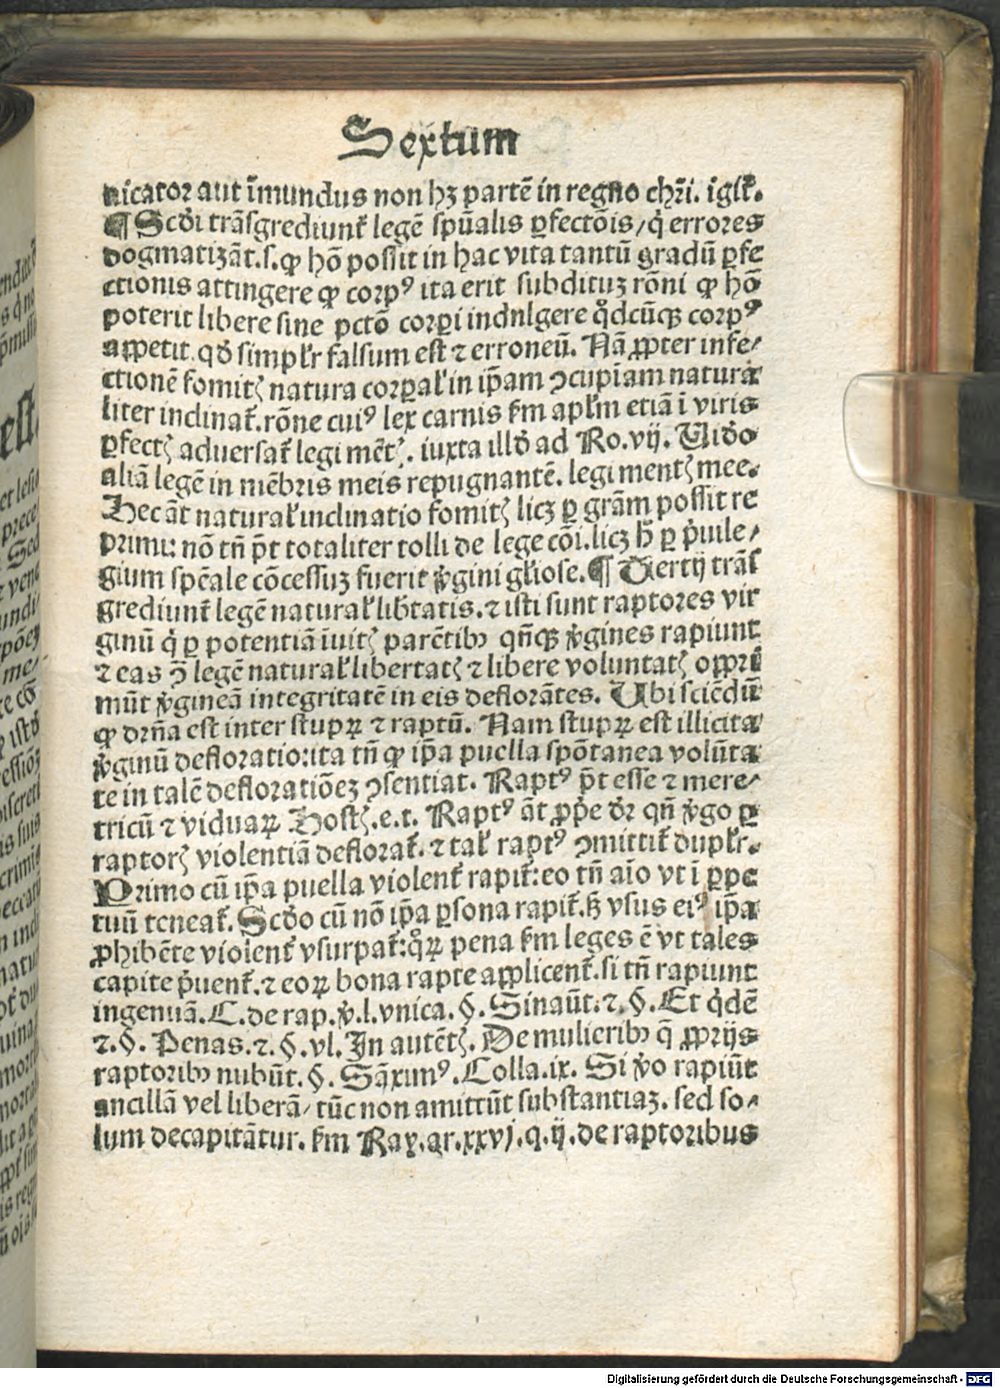 Sextum
nicator aut īmundus non hꝫ partē in regno chr̄i. iglr̄.
¶ Scd̄i trāsgrediunt̄ legē spūalis ꝑfectōis/ q̇ errores
dogmatizāt.s.ꝙ hō possit in hac vita tantū gradū ꝑfe
ctionis attingere ꝙ corpꝰ ita erit subdituꝫ rōni ꝙ hō
poterit libere sine pctō corꝑi indnlgere qd̊cūqꝫ corpꝰ
appetit. qd̄ simplr̄ falsum est ⁊ erroneū. Nā ꝓpter infe⸗
ctionē fomitꝭ natura corꝑal̄ in ip̄am ꝯcupīam natura
liter inclinat̄. rōne cuiꝰ lex carnis fm apl̄m etiā ī viris
ꝑfectꝭ aduersat̄ legi mētꝭ. iuxta illd̄ ad Ro.vij. Uideo
aliā legē in mēbris meis repugnantē. legi mentꝭ mee.
Hec āt natural̄ inclinatio fomitꝭ licꝫ ꝑ grām possit re
primi: nō tn̄ pt̄ totaliter tolli de lege cōi. licꝫ h̄ ꝑ pͥuile⸗
gium spēale cōcessuꝫ fuerit v̇gini gl̄iose. ¶ Tertij trās
grediunt̄ legē natural̄ lib̄tatis. ⁊ isti sunt raptores vir
ginū q̇ ꝑ potentiā īuitꝭ parētibꝫ qn̄qꝫ v̇gines rapiunt
⁊ eas ꝯ̄ legē natural̄ libertatꝭ ⁊ libere voluntatꝭ oppri
mūt v̇gineā integritatē in eis deflorātes. Ubi sciēdū
ꝙ drn̄a est inter stupꝝ ⁊ raptū. Nam stupꝝ est illicita
v̇ginū defloratio: ita tn̄ ꝙ ip̄a puella spōtanea volūta
te in talē defloratiōeꝫ ꝯsentiat. Raptꝰ pt̄ esse ⁊ mere⸗
tricū ⁊ viduaꝝ Hostꝭ.e.t. Raptꝰ āt ꝓp̄e dr̄ qn̄ v̇go ꝑ
raptorꝭ violentiā deflorat̄. ⁊ tal̄ raptꝰ ꝯmittit̄ duplr̄.
Primo cū ip̄a puella violent̄ rapit̄: eo tn̄ aīo vt ī ꝑpe
tuū teneat̄. Scd̄o cū nō ip̄a ꝑsona rapit̄. sꝫ vsus eiꝰ ip̄a
ꝓhibēte violent̄ vsurpat̄: qͦꝝ pena fm leges ē vt tales
capite pͥuent̄. ⁊ eoꝝ bona rapte applicent̄. si tn̄ rapiunt
ingenuā. C. de rap. v̇.l.vnica. §. Sinaūt. ⁊. §. Et qͥdē
⁊. §. Penas. ⁊. §. vl. In autētꝭ. De mulieribꝫ q̄ ꝓprijs
raptoribꝫ nubūt. §. Sāxımꝰ. Colla.ix. Si v̇o rapiūt
ancillā vel liberā/ tūc non amittūt substantiaꝫ. sed so⸗
lum decapitātur. fm Ray. ar.xxvj.q.ij. de raptoribus
Digitalisierung gefördert durch die Deutsche Forschungsgemeinschaft - DFG